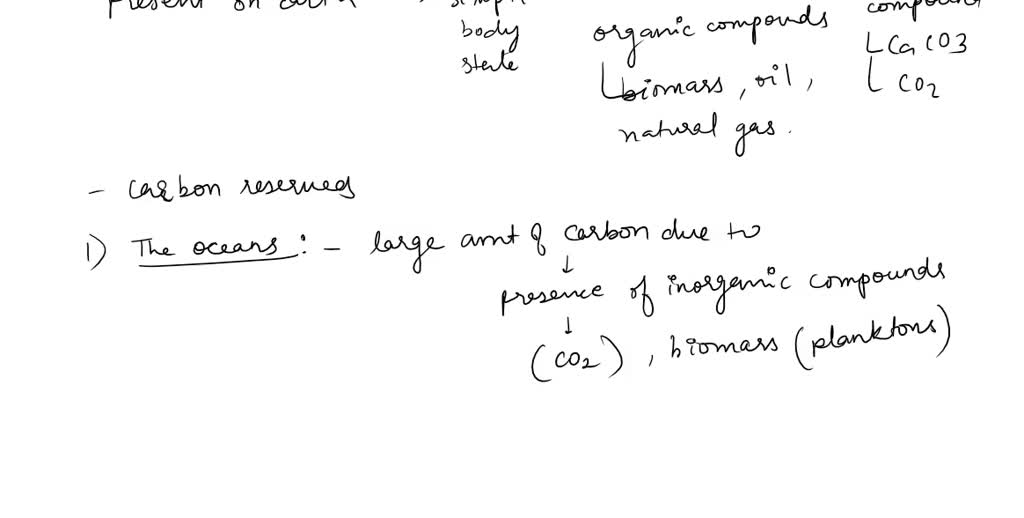 Present on earth
body
state
organic compounds
biomass, oil,
natural gas.
CaCO3
CO2
- carbon reserves
1) The oceans :- large amt of carbon due to
↓
presence of inorganic compounds
↓
(CO2), biomass (planktons)